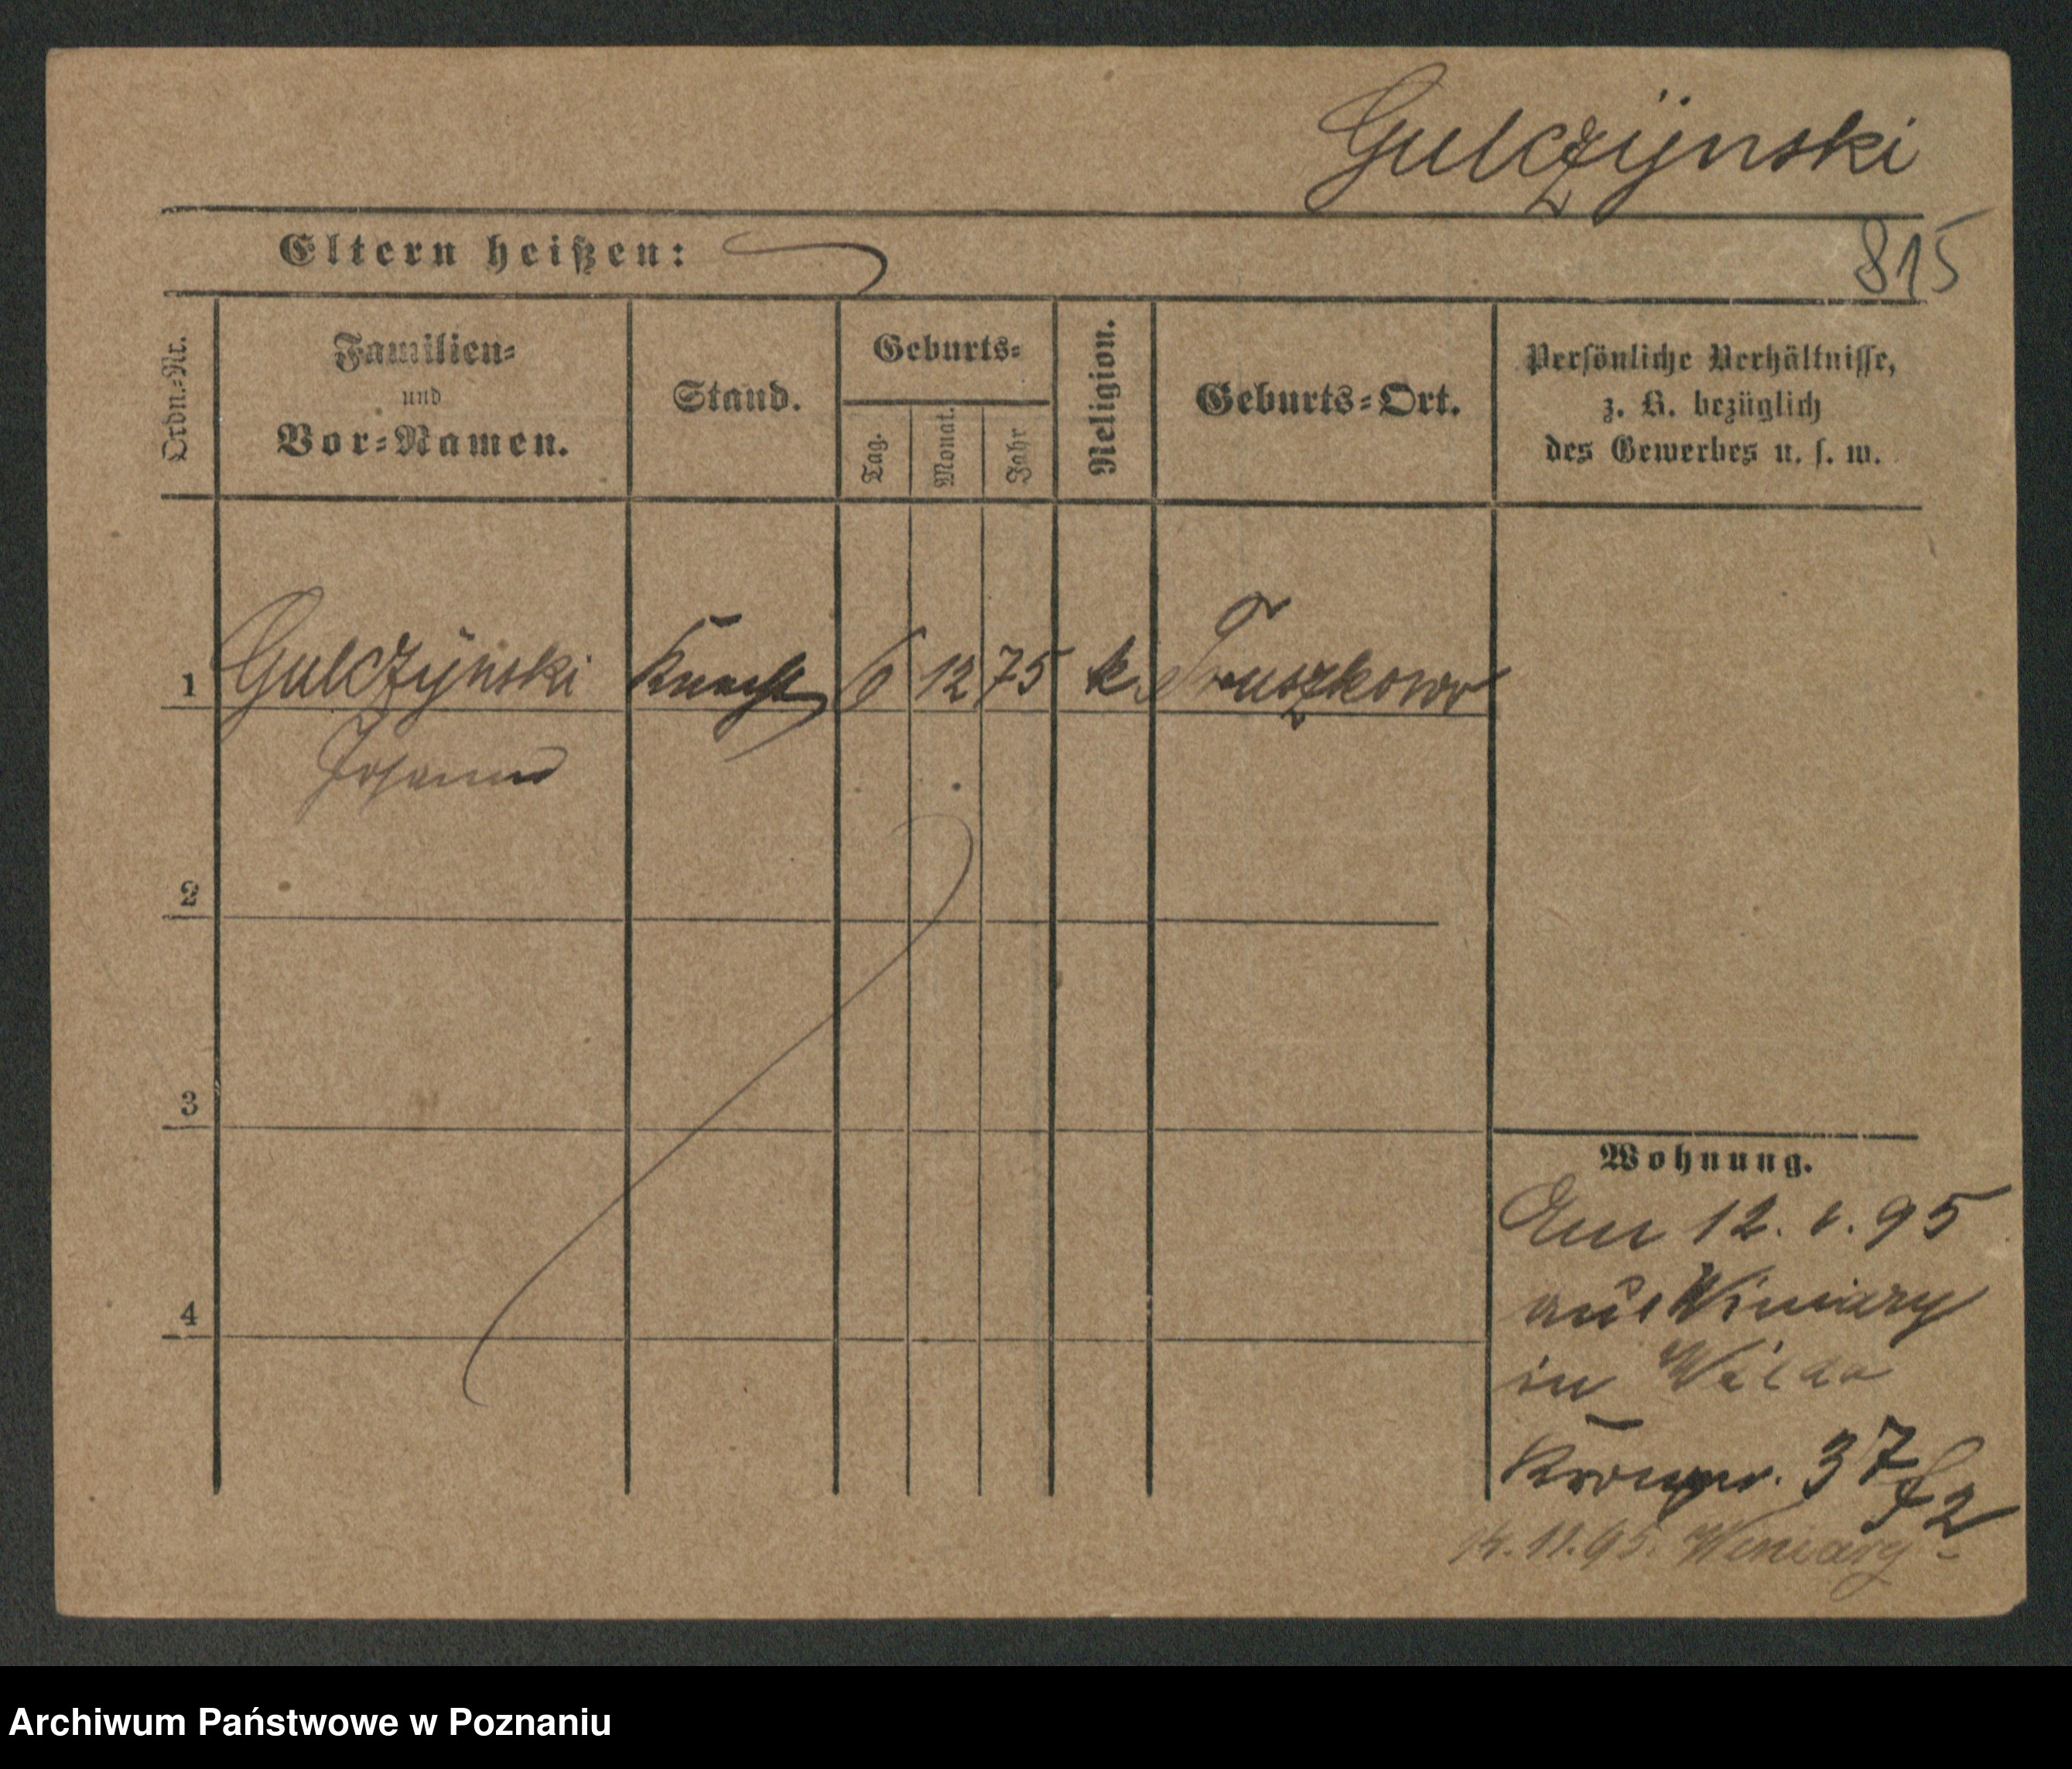 Gulczÿnski
Eltern heißen:
815
Ordn.-Nr.
Familien-
und
Vor-Namen.
Stand.
Geburts-
Tag.
Monat.
Jahr
Religion.
Geburts-Ort.
Persönliche Verhältnisse,
z. B. bezüglich
des Gewerbes u. s. w.
1 Gulczÿnski Knecht 6 12 75 k. Truszkowo
Johann
2
3
4
Wohnung.
12. 95
aus Winiary
in Wilda
Kronpr. 37
14.11.95. Winiary
Archiwum Państwowe w Poznaniu